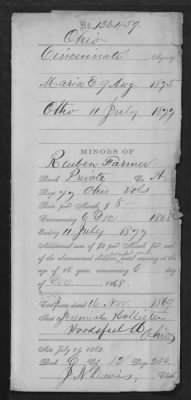 No. 136459
Ohio
Cincinnati Agency
Maria E 9 Aug. 1875
Otto 11 July 1877
MINORS OF
Reuben Farmer
Rank Private Co. A.
Reg 77 Ohio Vols
Rate per Month, $ 8
Commencing 6 Dec 1868
Ending 11 July 1877
Additional sum of $2 per Month for each
of the abovenamed children, until arriving at the
age of 16 years, commencing 6 day
of Dec 1868.
Certificate dated 16 Nov. 1869
Jeremiah Hollister
Woodsfield Ohio
Act July 14 1862
Book Vol. 12 Page
J. N. Davis, Clerk